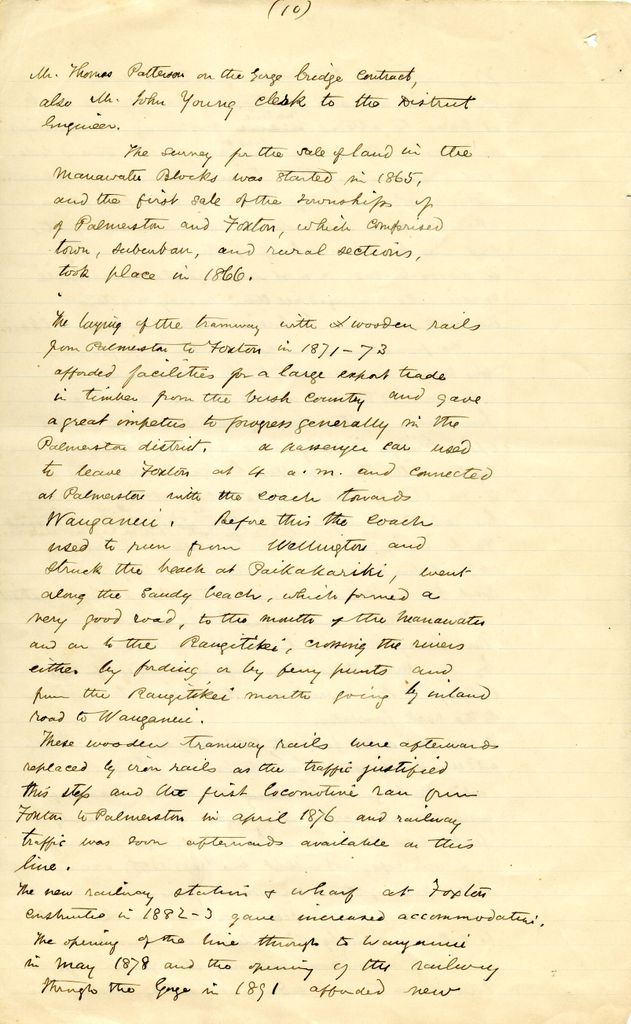 (10)
Mr. Thomas Patterson on the Gorge bridge contract,
also Mr. John Young clerk to the District
Engineer.
The survey for the sale of land in the
Manawatu Blocks was started in 1865,
and the first sale of the townships of
of Palmerston and Foxton, which comprised
town, suburban, and rural sections,
took place in 1866.
The laying of the tramway with wooden rails
from Palmerston to Foxton in 1871-73
afforded facilities for a large export trade
in timber from the bush country and gave
a great impetus to progress generally in the
Palmerston district. A passenger car used
to leave Foxton at 4 a.m. and connected
at Palmerston with the coach towards
Wanganui. Before this the coach
used to run from Wellington and
struck the beach at Paikakariki, went
along the sandy beach, which formed a
very good road, to the mouth of the Manawatu
and on to the Rangitikei, crossing the rivers
either by fording or by ferry punts and
from the Rangitikei mouth going by inland
road to Wanganui.
These wooden tramway rails were afterwards
replaced by iron rails as the traffic justified
this step and the first locomotive ran from
Foxton to Palmerston in April 1876 and railway
traffic was soon afterwards available on this
line.
The new railway station & wharf at Foxton
constructed in 1882-3 gave increased accommodation.
The opening of the line through to Wanganui
in May 1878 and the opening of the railway
through the Gorge in 1891 afforded new